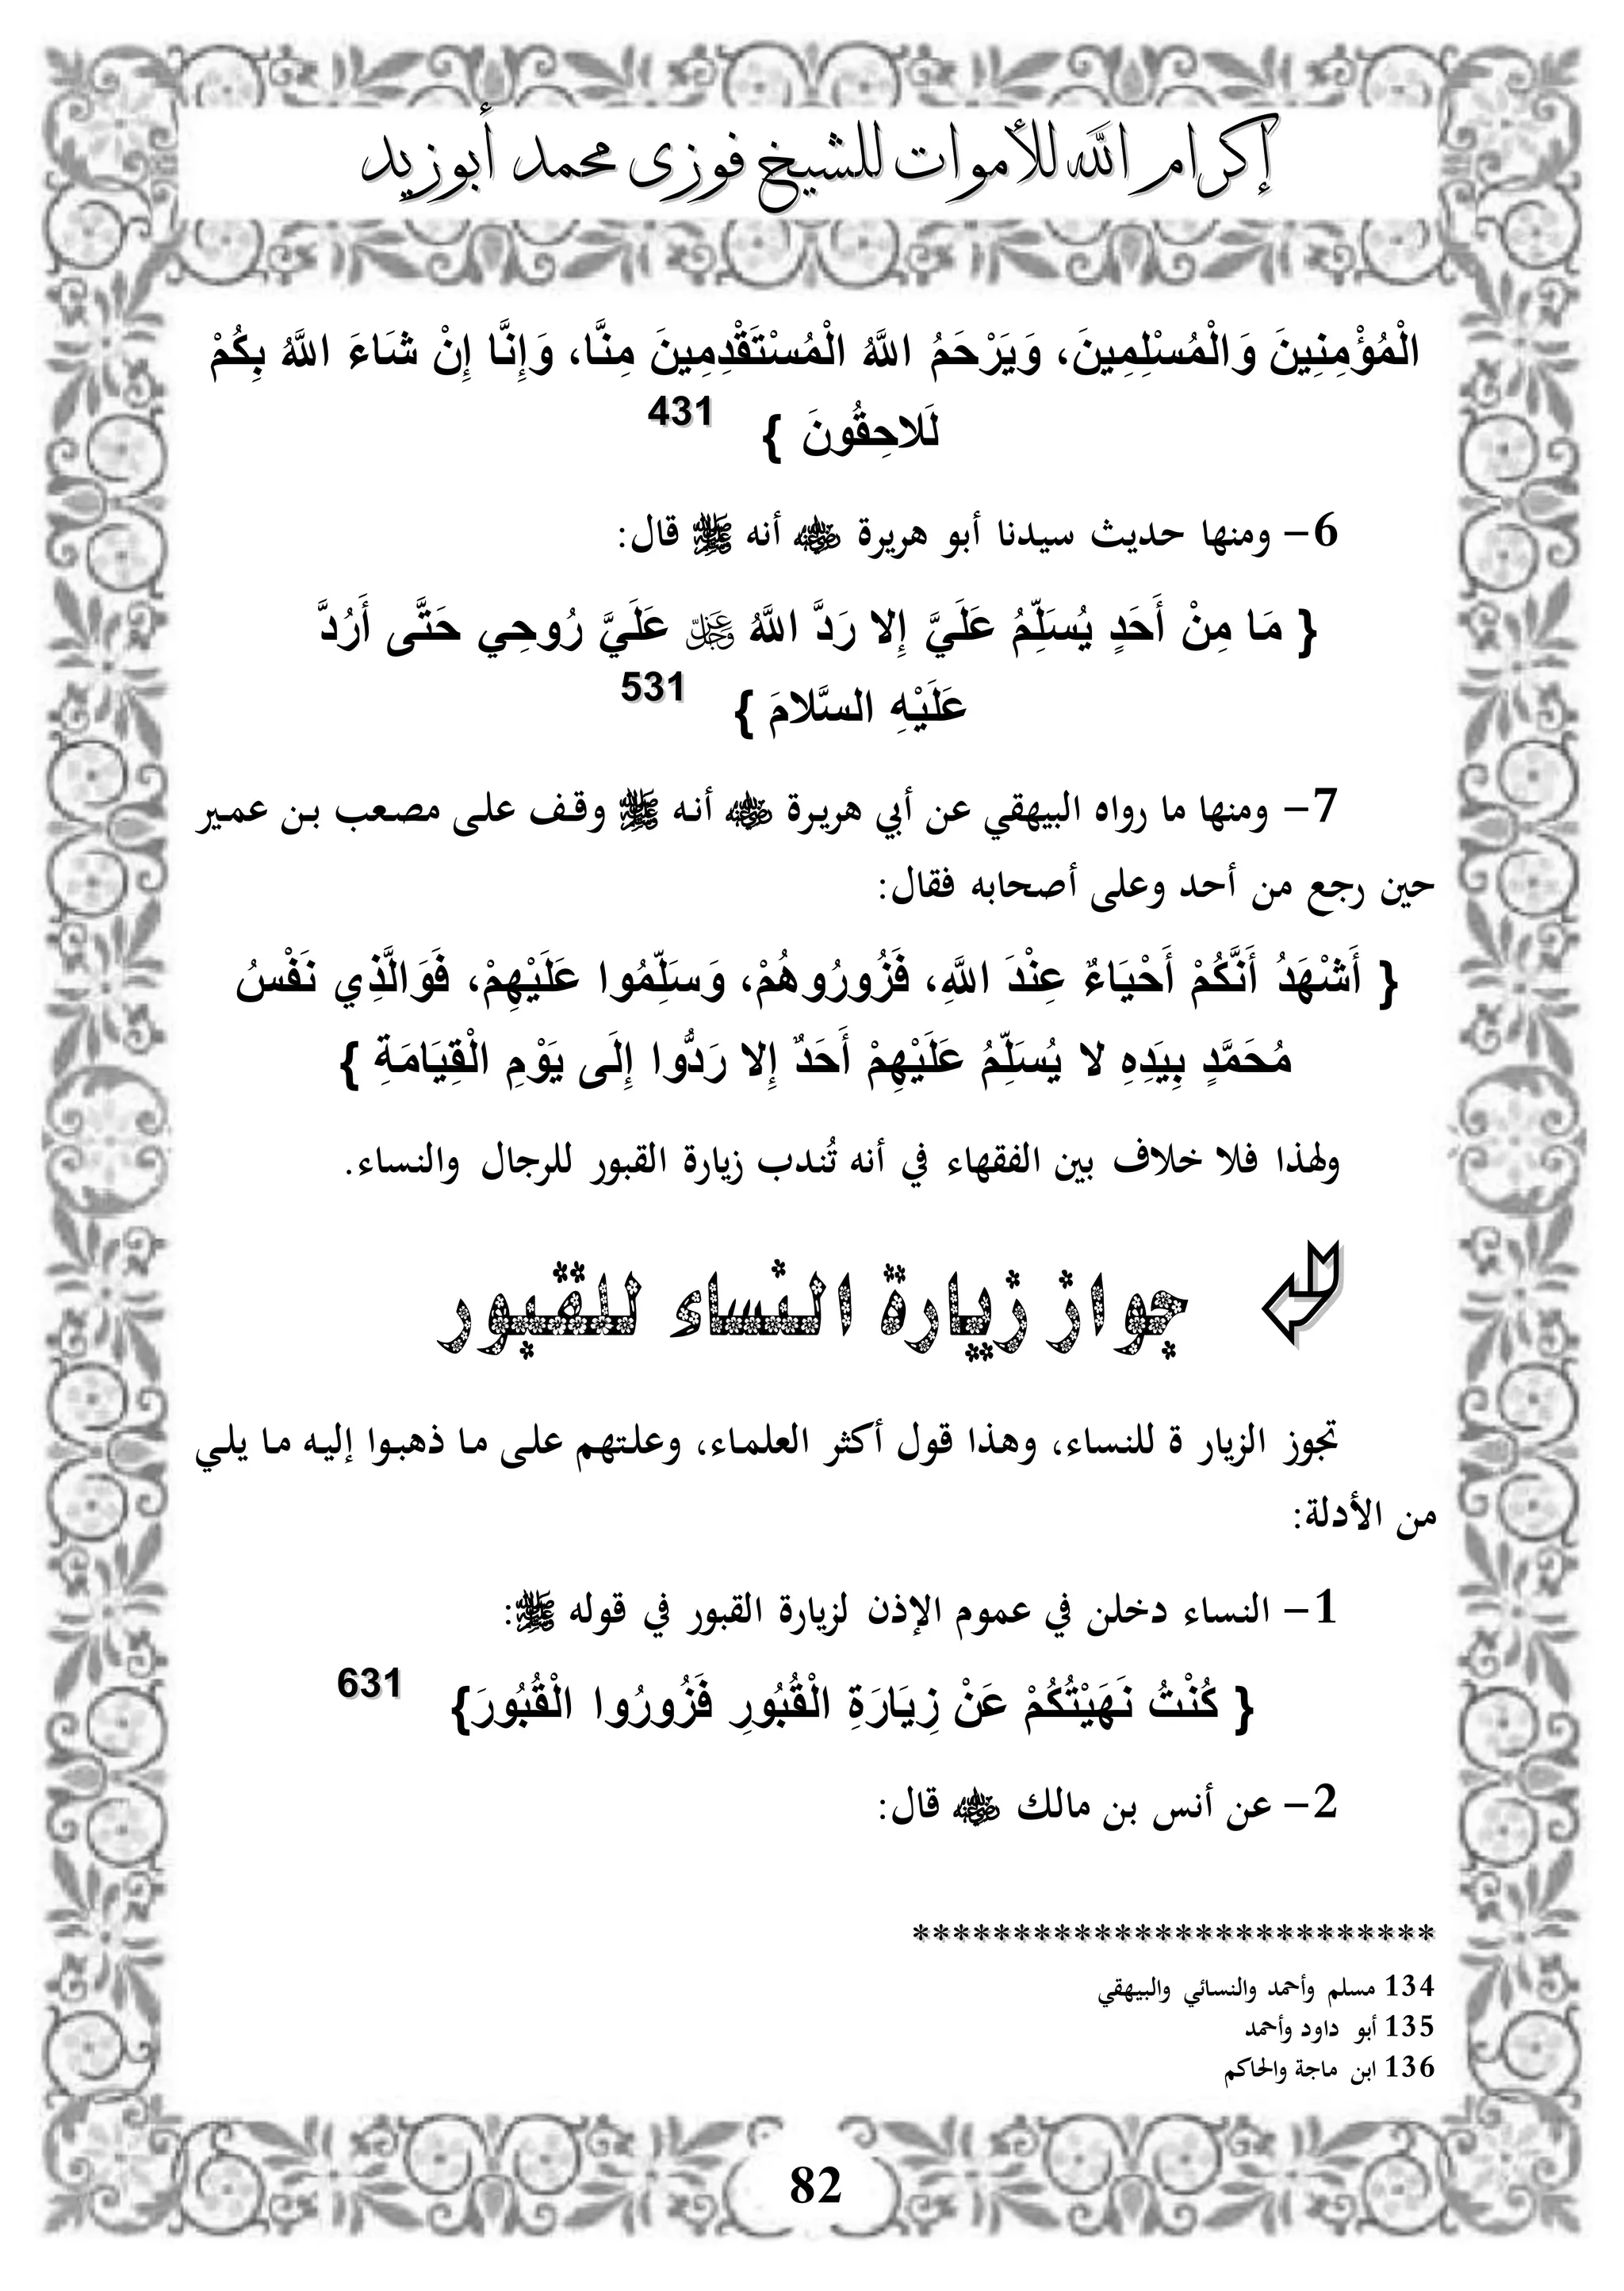 إكرام الله للأموات للشيخ فوزى محمد أبوزيد
الْمُؤْمِنِينَ وَالْمُسْلِمِينَ، وَيَرْحَمُ اللَّهُ الْمُسْتَقْدِمِينَ مِنَّا، وَإِنَّا إِنْ شَاءَ اللَّهُ بِكُمْ
لَلاحِقُونَ } 431
6- ومنها حديث سيدنا أبو هريرة ؓ أنه ﷺ قال:
{ مَا مِنْ أَحَدٍ يُسَلِّمُ عَلَيَّ إِلا رَدَّ اللَّهُ عَزَّ وَجَلَّ عَلَيَّ رُوحِي حَتَّى أَرُدَّ
عَلَيْهِ السَّلامَ } 531
7- ومنها ما رواه البيهقي عن أبي هريرة ؓ أنه ﷺ وقف على مصعب بن عمير
حين رجع من أحد وعلى أصحابه فقال:
{ أَشْهَدُ أَنَّكُمْ أَحْيَاءٌ عِنْدَ اللَّهِ، فَزُورُوهُمْ، وَسَلِّمُوا عَلَيْهِمْ، فَوَالَّذِي نَفْسُ
مُحَمَّدٍ بِيَدِهِ لا يُسَلِّمُ عَلَيْهِمْ أَحَدٌ إِلا رَدُّوا إِلَى يَوْمِ الْقِيَامَةِ }
ولهذا فلا خلاف بين الفقهاء في أنه تُندب زيارة القبور للرجال والنساء.
جواز زيارة النساء للقبور
تجوز الزيار ة للنساء، وهذا قول أكثر العلماء، وعلتهم على ما ذهبوا إليه ما يلي
من الأدلة:
1- النساء دخلن في عموم الإذن لزيارة القبور في قوله ﷺ:
{ كُنْتُ نَهَيْتُكُمْ عَنْ زِيَارَةِ الْقُبُورِ فَزُورُوا الْقُبُورَ} 631
2- عن أنس بن مالك ؓ قال:
**************************
134 مسلم وأحمد والنسائي والبيهقي
135 أبو داود وأحمد
136 ابن ماجة والحاكم
82